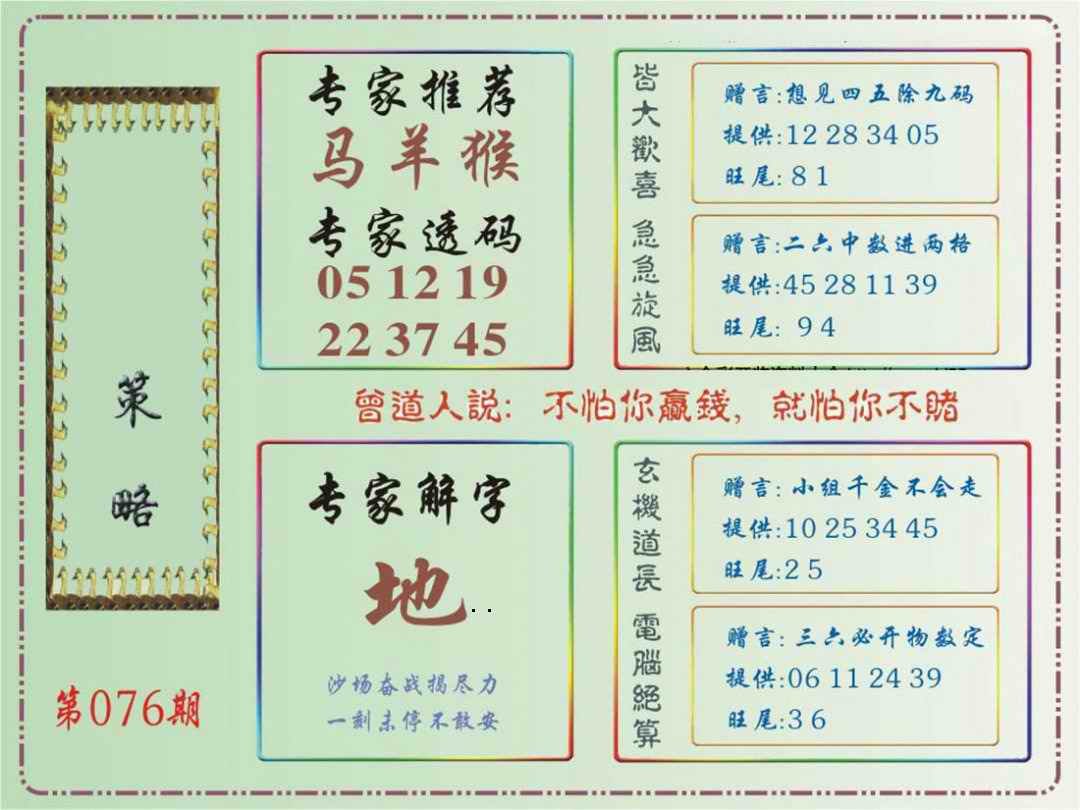 策略
第076期
专家推荐
马羊猴
专家透码
05 12 19
22 37 45
皆大歡喜
赠言:想见四五除九码
提供:12 28 34 05
旺尾: 8 1
急急旋風
赠言:二六中数进两格
提供:45 28 11 39
旺尾: 9 4
曾道人説: 不怕你贏錢, 就怕你不賭
专家解字
地..
沙场奋战揭尽力
一刻未停不敢安
玄機道長
赠言: 小组千金不会走
提供:10 25 34 45
旺尾:2 5
電腦絕算
赠言: 三六必开物数定
提供:06 11 24 39
旺尾:3 6